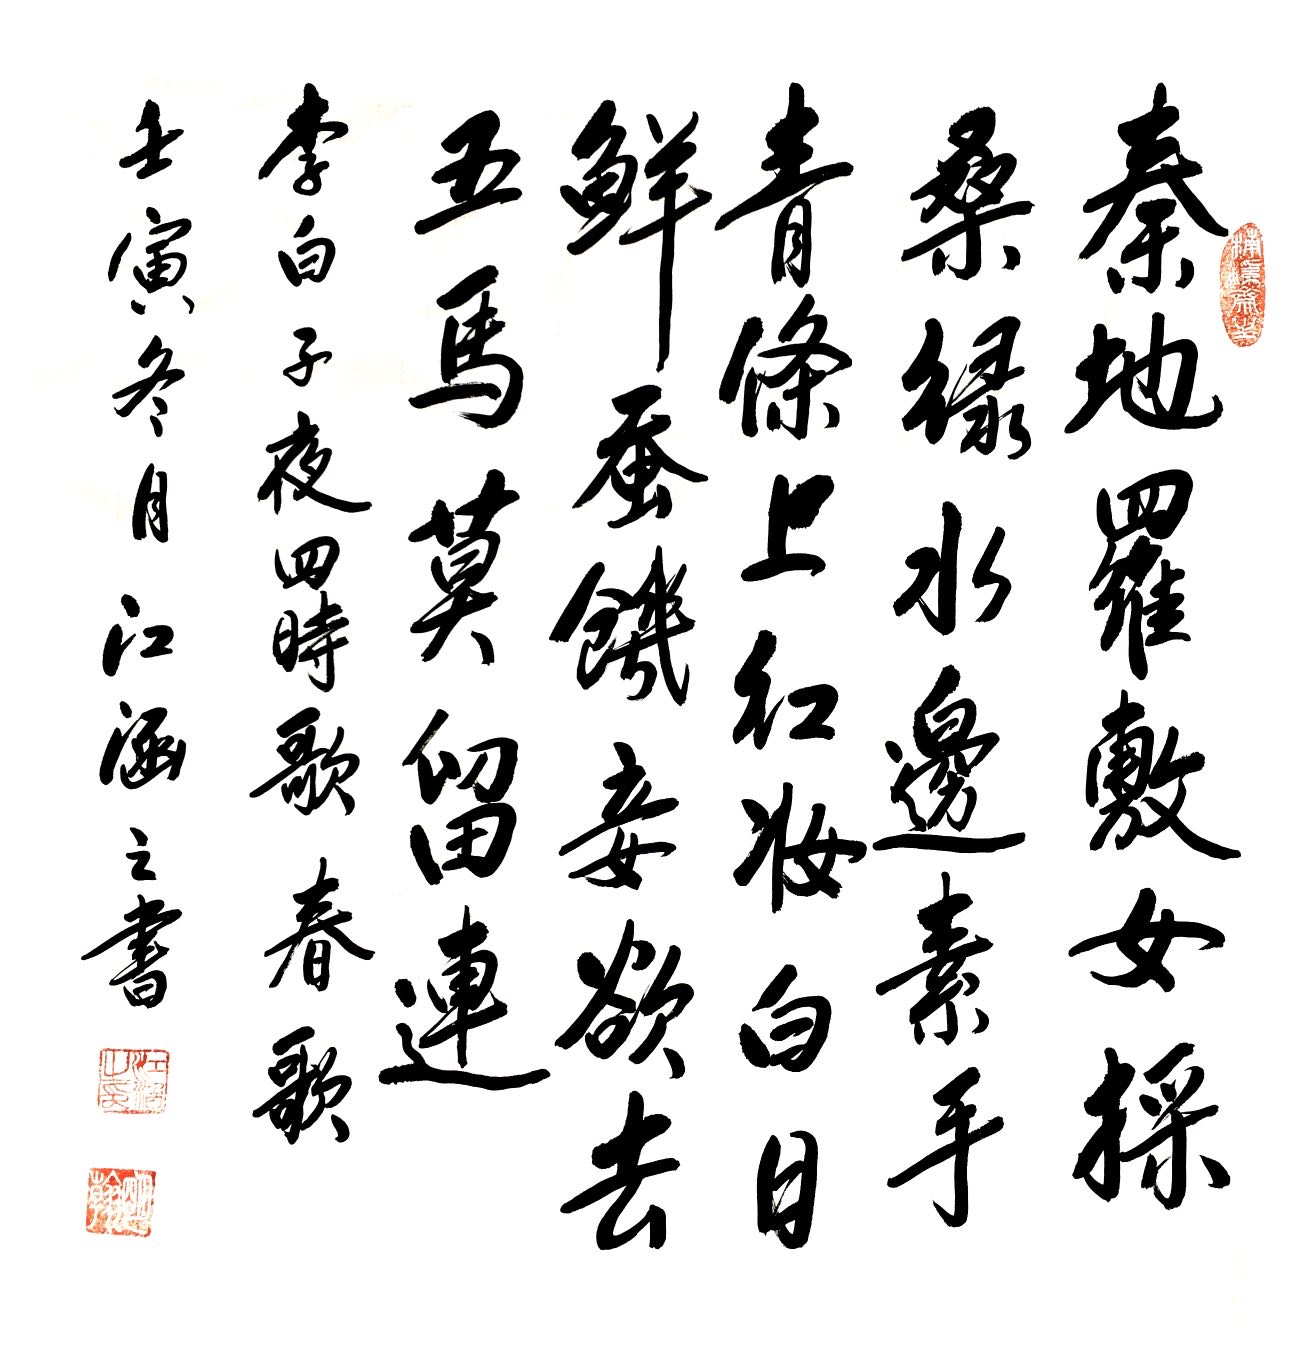 秦地羅敷女採
桑緑水邊素手
青條上红妝白日
鮮蚕饑妾欲去
五馬莫留連
李白子夜四時歌春歌
壬寅冬月江涵之書